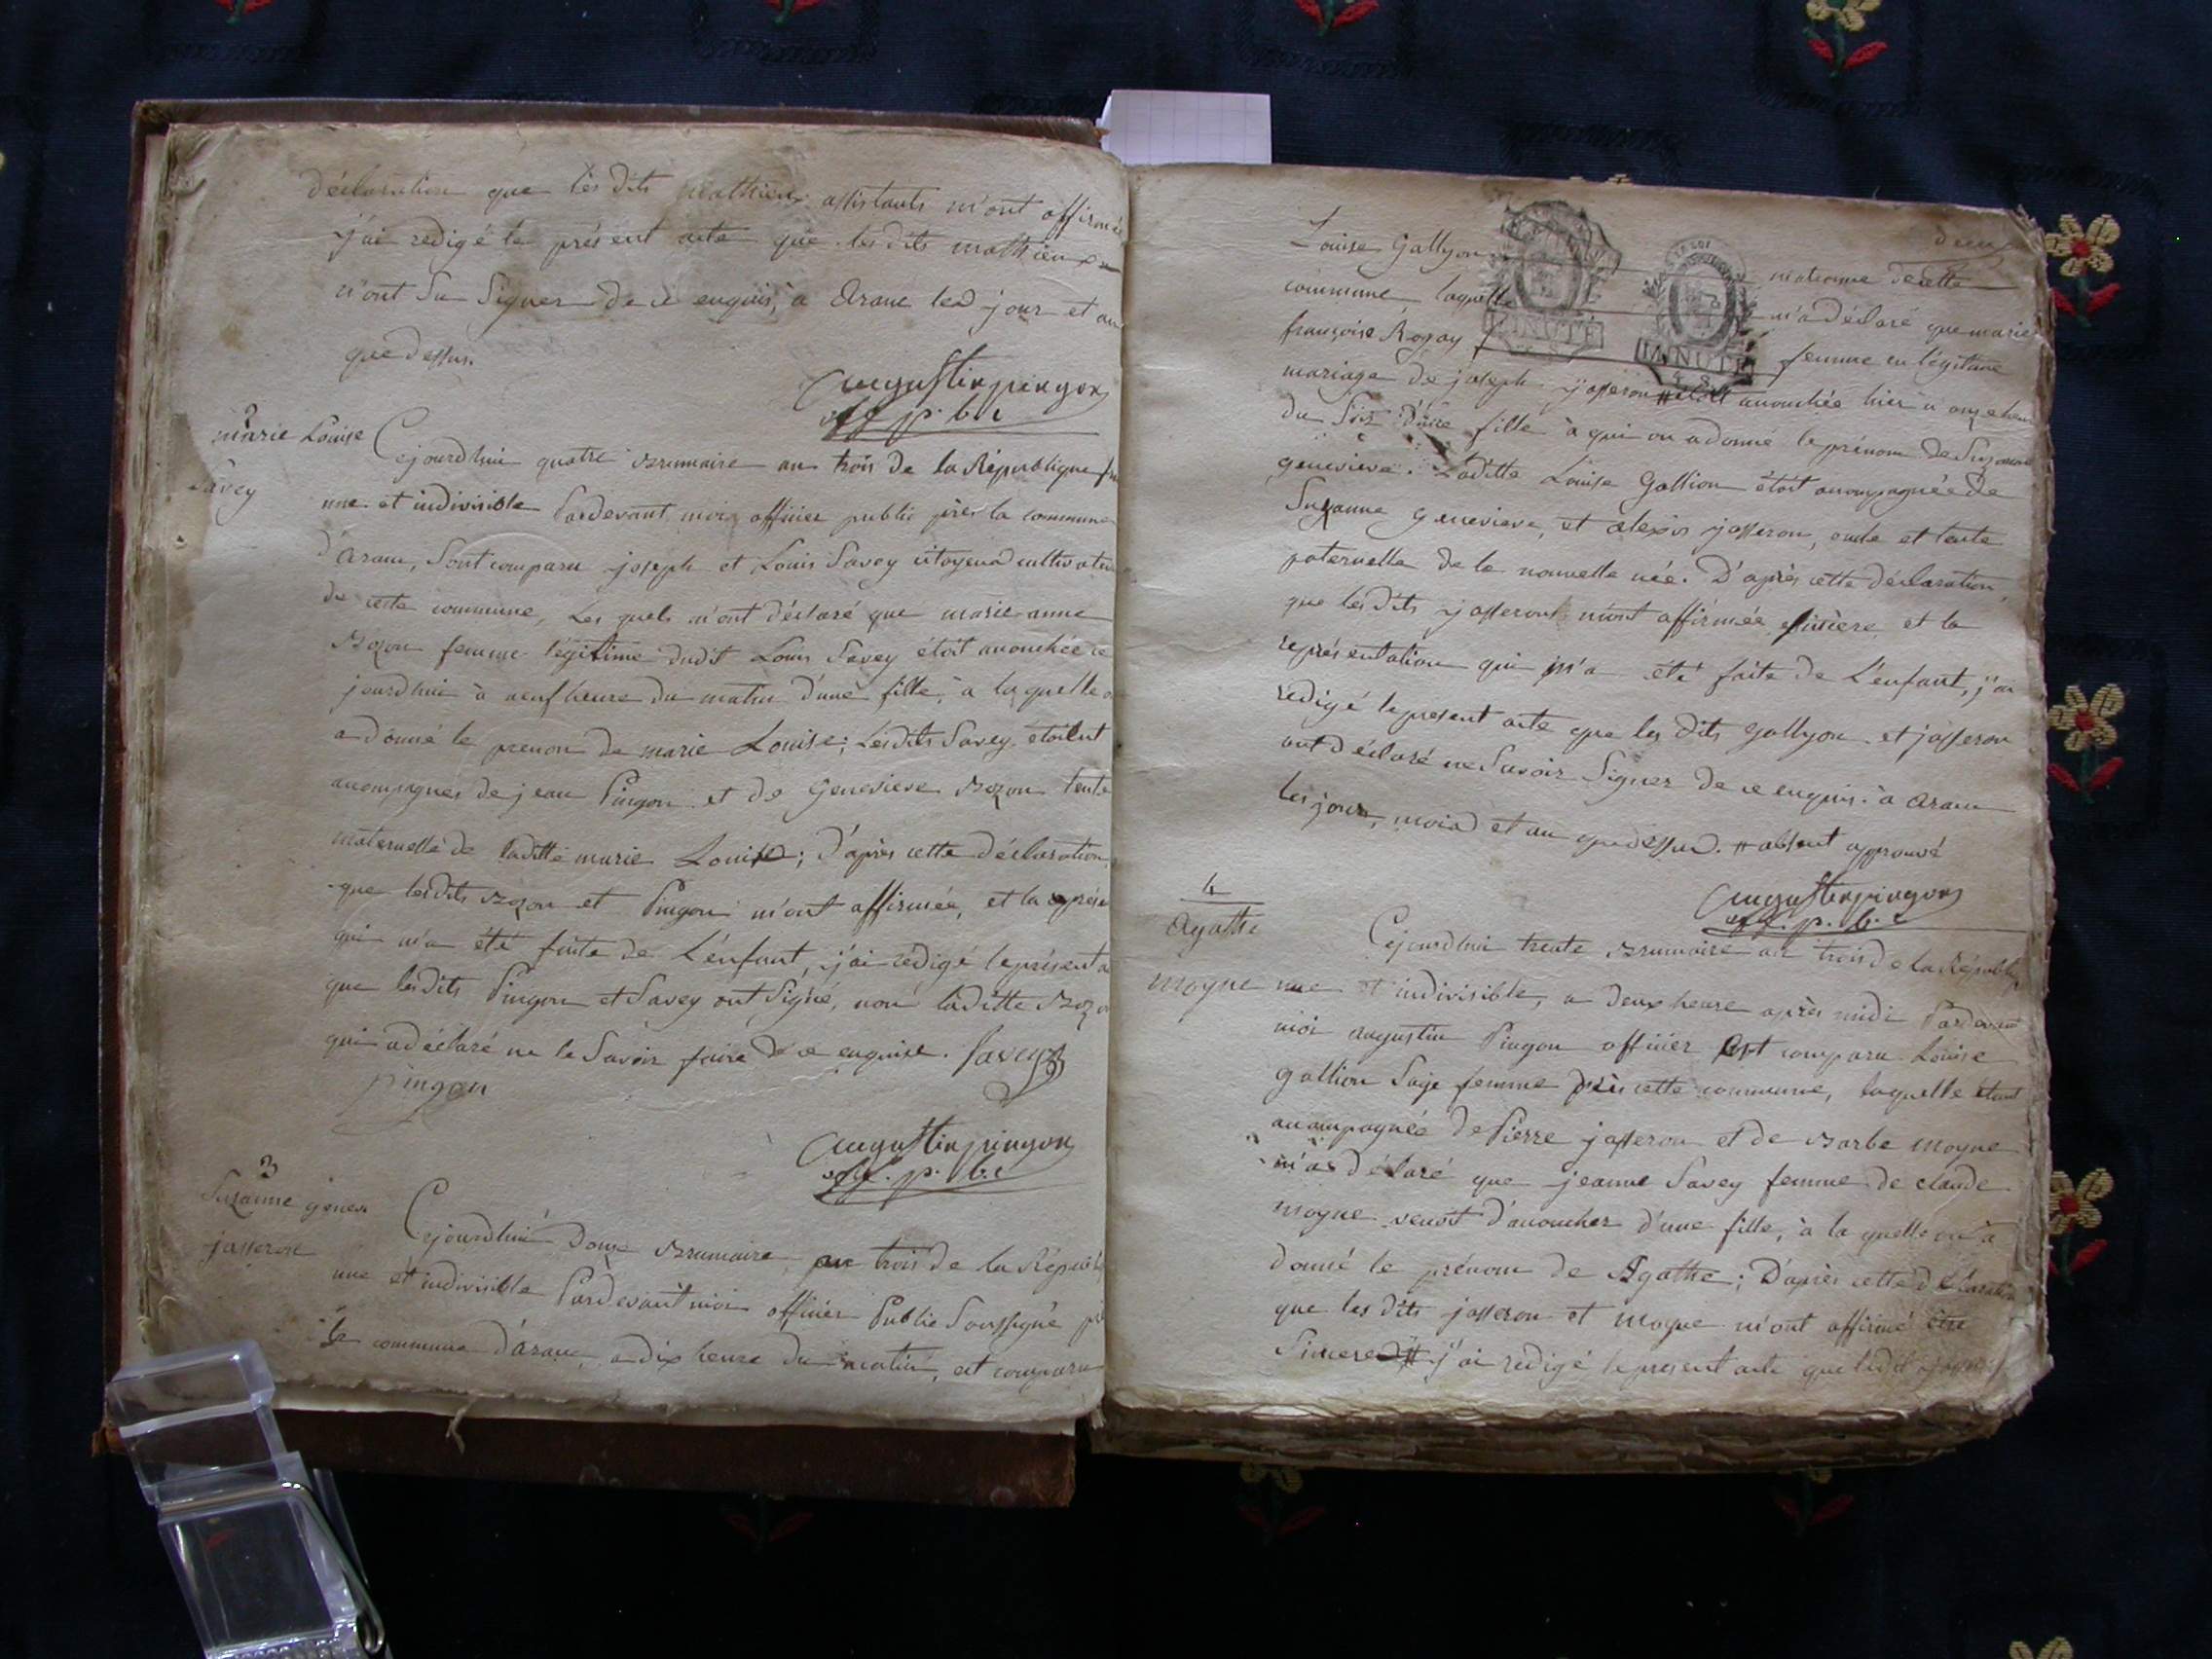 déclaration que les dits mathieux assistants m'ont affirmée
j'ai redigé le présent acte que les dits mathieux
n'ont Su Signer de ce enquis, a Aranc les jour et an
que dessus.
augustin pingon
off. p. b. c
2
marie Louise
Savey
Cejourdhui quatre Brumaire an trois de la République
une et indivisible Pardevant moi officier public près la commune
d'aranc, Sont comparu joseph et Louis Savey citoyens cultivateurs
de cette commune, Les quels m'ont déclaré que marie anne
Bozon femme légitime dudit Louis Savey étoit anouchée ce
jourdhui à neuf heure du matin d'une fille, à laquelle
a donné le prenom de marie Louise; Lesdits Savey étoient
acompagnes de jean Pingon et de Genevieve Bozon tente
maternelle de laditte marie Louise; d'après cette déclaration
que lesdits Bozon et Pingon m'ont affirmée, et la
qui m'a été faite de L'énfant, j'ai rédigé leprésent
que lesdits Pingon et Savey ont Signé, non laditte Bozon
qui adéclaré ne le Savoir faire de ce enquise. Savey
pingon
augustin pingon
off. p. b. c
3
Suzanne genev
jasseron
Cejourdhui douze Brumaire an trois de la Républi
une et indivisible Pardevant moi officier Public Soussigné
la commune d'aranc, a dix heure du matin, est comparu
deux
Louise Gallyon matronne decette
commune laquelle m'a déclaré que marie
françoise Rogay femme en légitime
mariage de joseph jasseron # étoit anouchée hier a onze heure
du Soir d'une fille à qui on adonné leprénom de Suzanne
genevieve. Laditte Louise Gallion étoit acompagnée de
Suzanne genevieve, et alexis jasseron, oncle et tente
paternelle de la nouvelle née. D'après cette déclaration,
que lesdits jasseront m'ont affirmée Sincère, et la
représentation qui m'a été faite de L'énfant, j'ai
redigé lepresent acte que les dits gallyon et jasseron
ont déclaré ne Savoir Signer de ce enquis. à aranc
les jour, mois et an quedessus. # absent approuvé
augustin pingon
off. p. b. c
4
Agathe
moyne
Cejourdhui trente Brumaire an trois de la Républi
une et indivisible, a deux heure après midi Pardevant
moi augustin Pingon officier est comparu Louise
gallion Sage femme près cette commune, laquelle étant
acompagnée de Pierre jasseron et de Barbe moyne
m'as déclaré que jeanne Savey femme de claude
moyne venoit d'anoucher d'une fille, à la quelle on à
donné le prénom de Agathe; D'après cette déclaration
que les dits jasseron et moyne m'ont affirmé être
Sincere # j'ai redigé lepresent acte que ledit
MINUTE
MINUTE